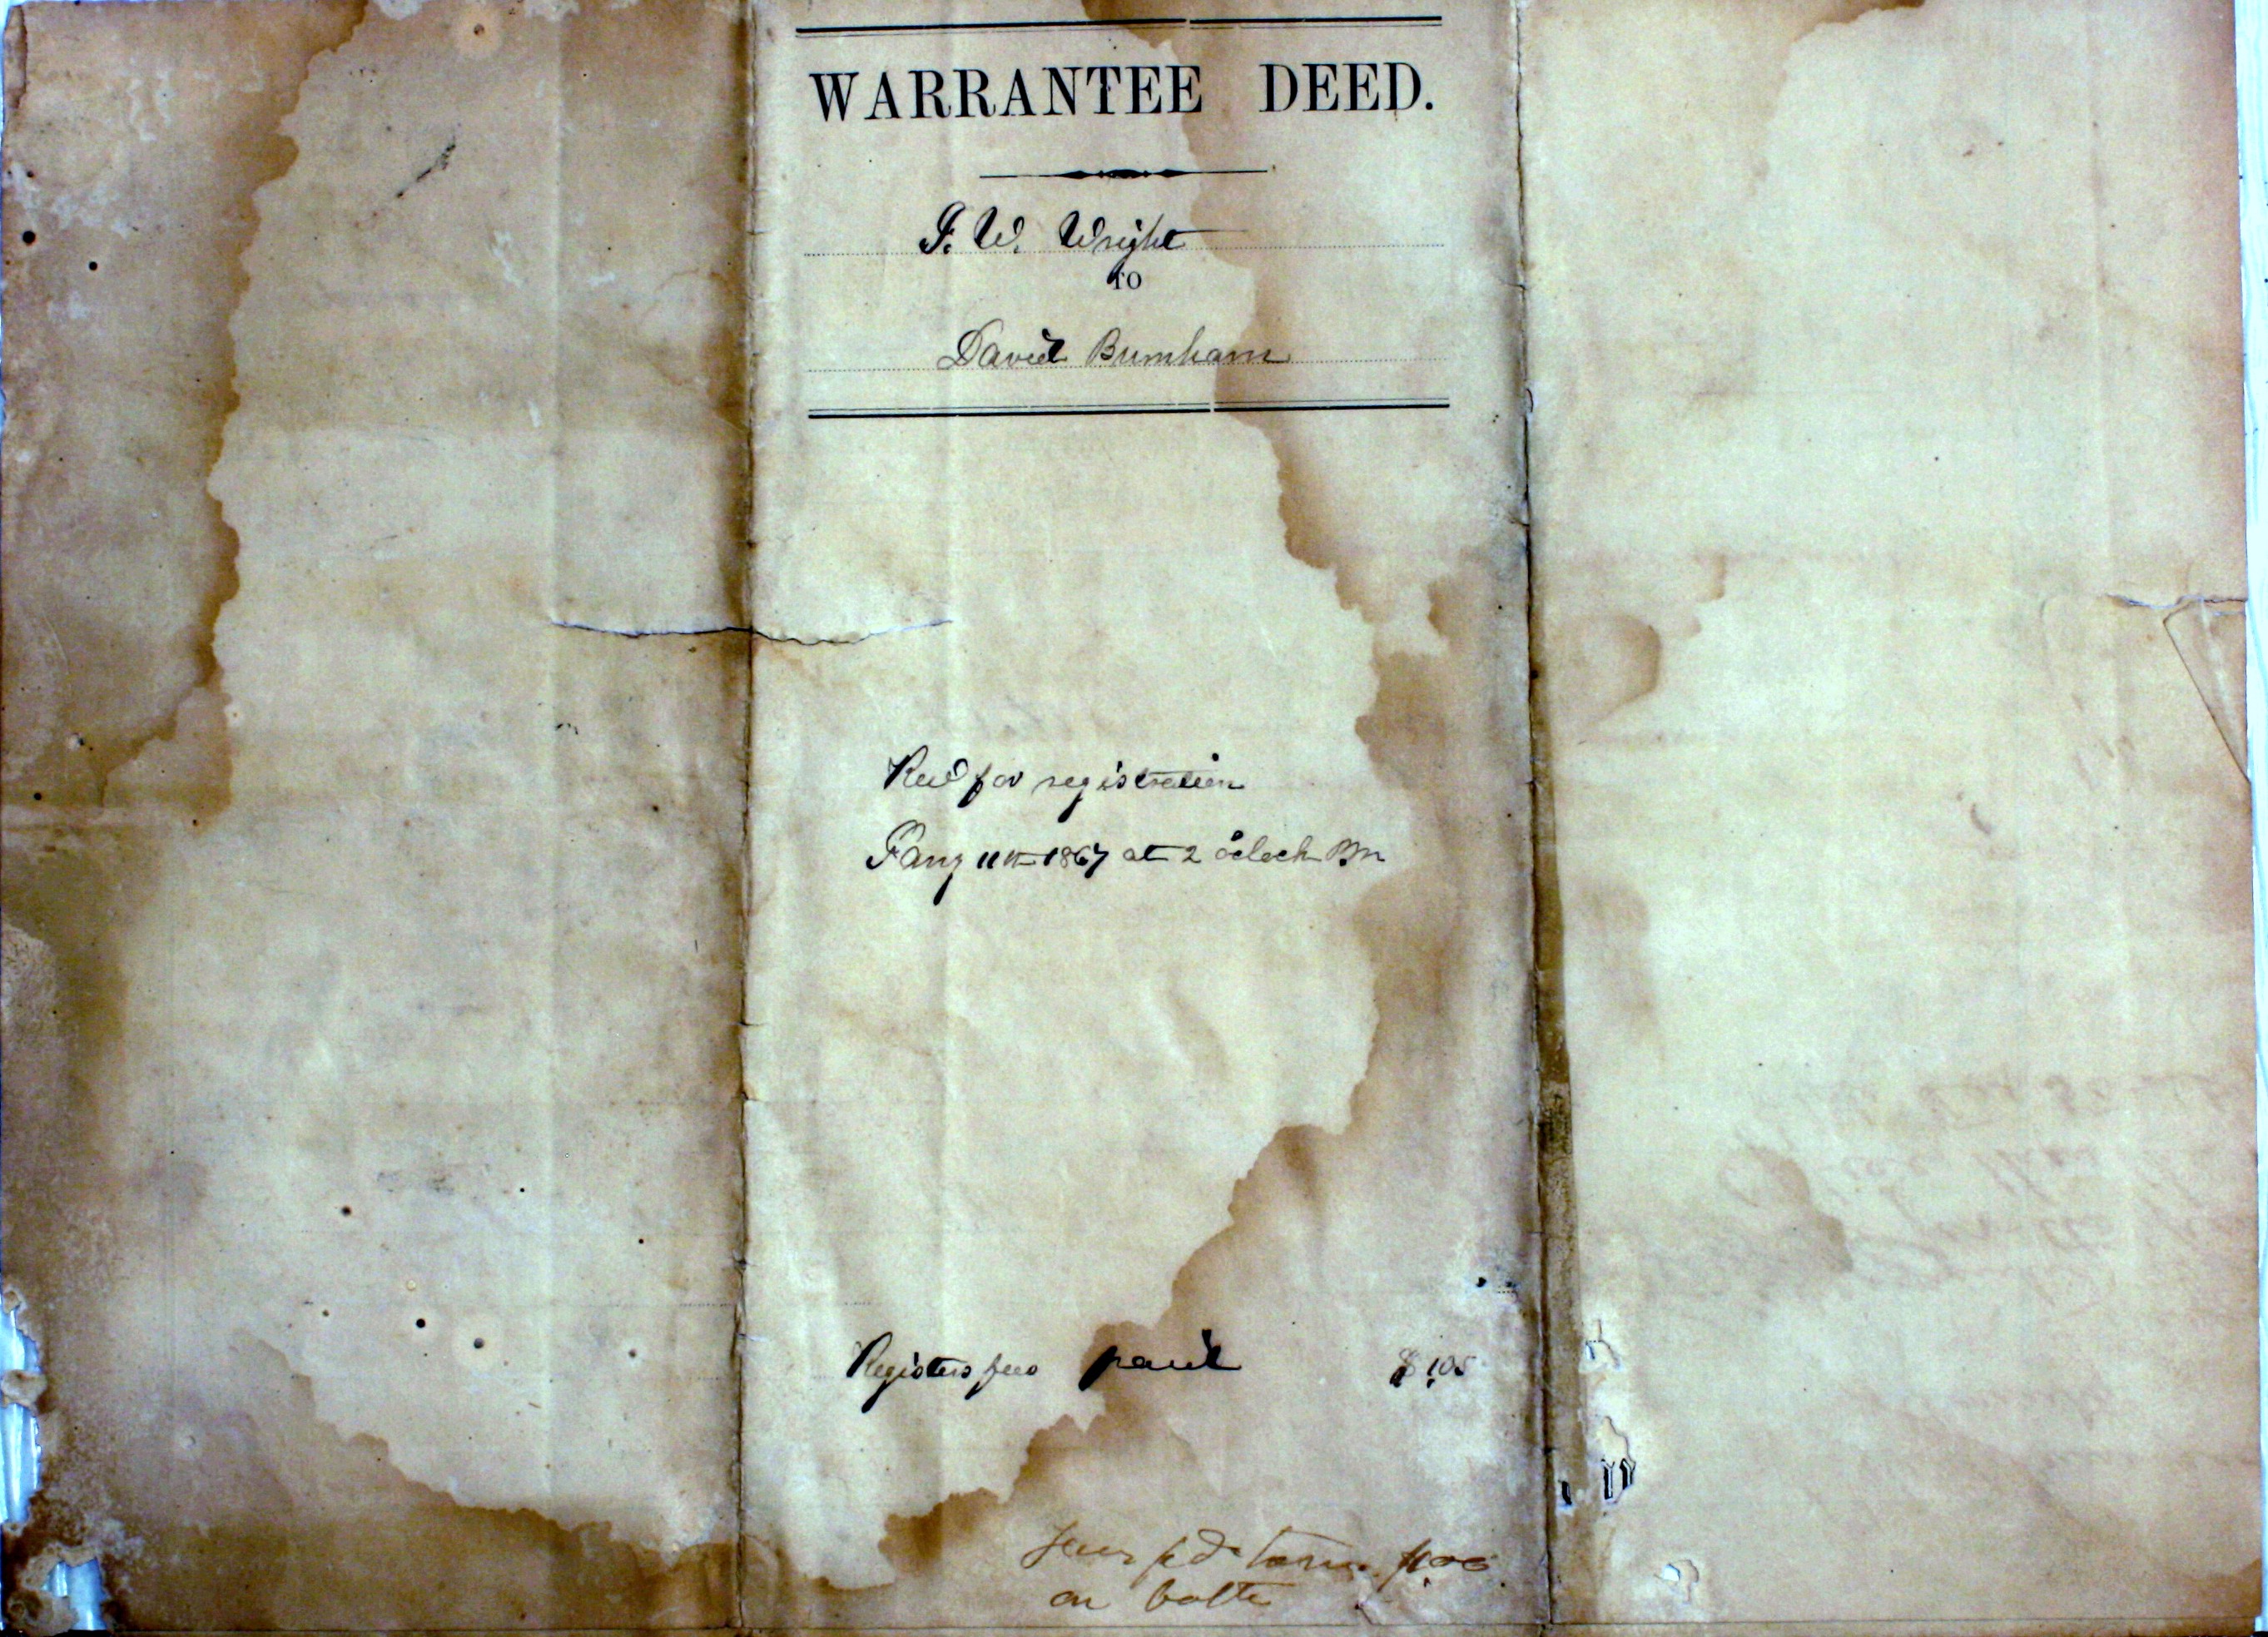 WARRANTEE DEED.
J. W. Wright
to
David Burnham
Recd for registration
Jany 11th 1867 at 2 oclock Pm
Registers fees paid $1.05
pd
on both